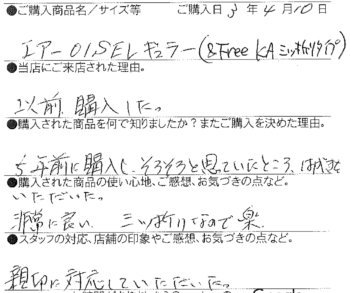 ●ご購入商品名／サイズ等　ご購入日 3 年 4 月 10 日
エアー01.SEL レギュラー (&Free KA ミツ折りタイプ)
●当店にご来店された理由。
以前 購入した。
●購入された商品を何で知りましたか？またご購入を決めた理由。
5年前に購入し、そろそろと思っていたところ、はがきを
●購入された商品の使い心地、ご感想、お気づきの点など。
いただいた。
非常に良い 三ツ折りなので楽。
●スタッフの対応、店舗の印象やご感想、お気づきの点など。
親切に対応していただいた。